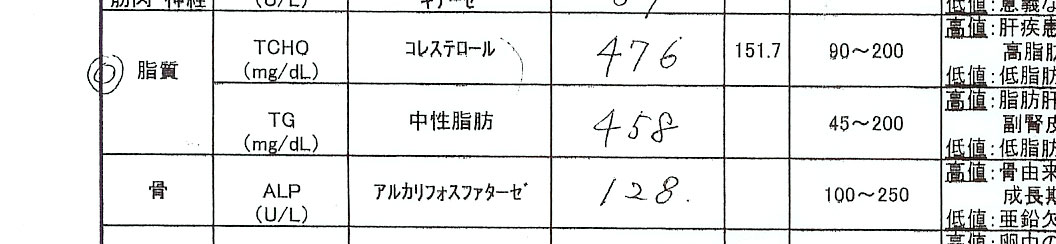 筋肉・神経 (U/L) 低値:意義な
脂質 TCHO (mg/dL) コレステロール 476 151.7 90~200 高値:肝疾患
高脂肪
低値:低脂肪
TG (mg/dL) 中性脂肪 458 45~200 高値:脂肪肝
副腎皮
低値:低脂肪
骨 ALP (U/L) アルカリフォスファターゼ 128. 100~250 高値:骨由来
成長期
低値:亜鉛欠